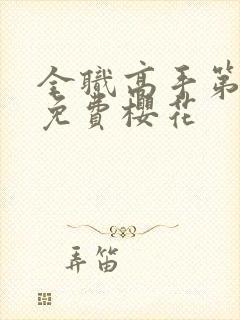 全職高手第
免費櫻花
弄笛